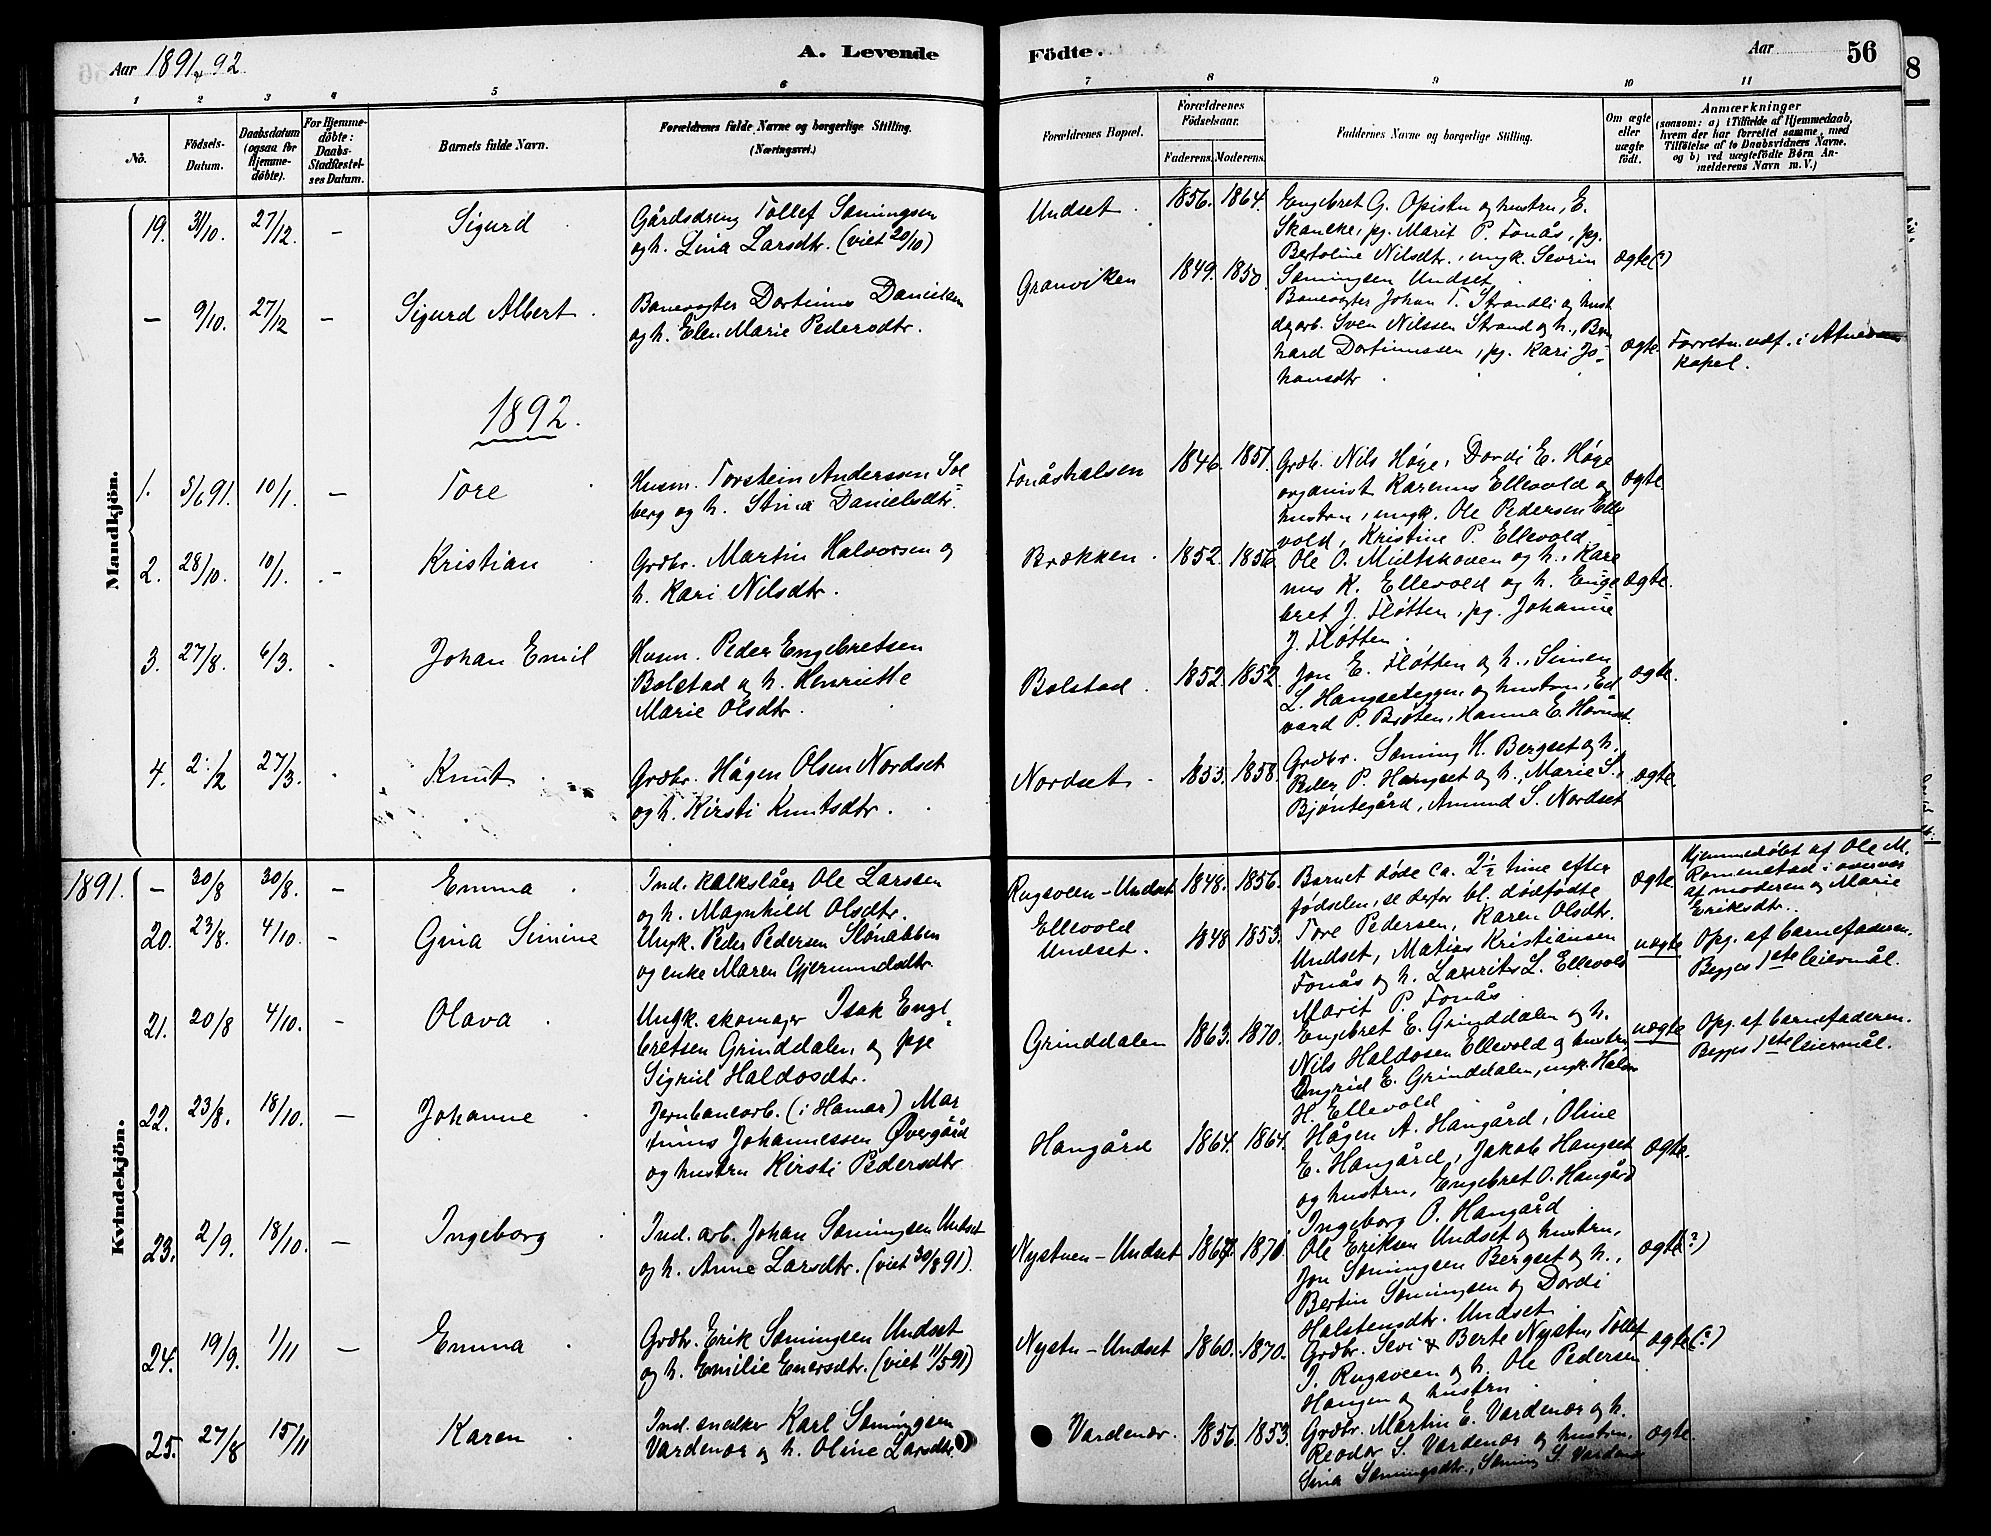 Aar 1891-92.
A. Levende
1 2 3 4 5 6
No.
Födsels-
Datum.
Daabsdatum
(ogsaa for
Hjemme-
döbte).
For Hjemme-
döbte:
Daabs-
Stadfæstel-
ses Datum.
Barnets fulde Navn.
Forældrenes fulde Navne og borgerlige Stilling.
(Næringsvei.)
Mandkjön.
19. 31/10. 27/12. – Sigurd
Gårdsdreng Tollef Sæmingsen
og h. Lina Larsdtr. (viet 20/10)
– 9/10. 27/12 – Sigurd Albert.
Banevogter Dortinus Danielsen
og h. Elen Marie Pedersdtr.
1892.
1. 5/6 91. 10/1. – Tore
Husm. Torstein Anderssen Sol=
berg og h. Stina Danielsdtr.
2. 28/10. 10/1. – Kristian
Grdbr. Martin Halvorsen og
h. Kari Nilsdtr.
3. 27/8. 6/3. Johan Emil
Husm. Peder Engebretsen
Bolstad og h. Henriette
Marie Olsdtr.
4. 2/2 27/3. Knut
Grdbr. Hågen Olsen Nordset
og h. Kirsti Knutsdtr.
Kvindekjön.
1891. – 30/8 30/8. – Emma
Ind. kalkslåer Ole Larssen
og h. Magnhild Olsdtr.
20. 23/8. 4/10. – Gina Simine
Ungk. Peder Pedersen Slønabben
og enke Maren Gjermundsdtr.
21. 20/8 4/10. – Olava
Ungk. skomager Isak Enge=
bretsen Grinddalen, og pige
Sigrid Haldosdtr.
22. 23/8. 18/10. – Johanne
Jernbanearb. (i Hamar) Mar=
tinus Johannessen Øvergård
og hustru Kirsti Pedersdtr
23. 2/9. 18/10. – Ingeborg
Ind. arb. Johan Sæmingsen Undset
og h. Anne Larsdtr. (viet 30/8 91).
24. 19/9. 1/11 – Emma
Grdbr. Erik Sæmingsen Undset
og h. Emilie Enersdtr. (viet 11/5 91)
25. 27/8 15/11 Karen
Ind. snedker Karl Sæmingsen
Vardenær og h. Oline Larsdtr.
Födte.
Aar
56
8
7 8 9 10 11
Forældrenes Bopæl.
Forældrenes
Födselsaar.
Faderens. Moderens.
Faddernes Navne og borgerlige Stilling.
Om ægte
eller
uægte
født.
Anmærkninger
(saasom: a) i Tilfælde af Hjemmedaab,
hvem der har forrettet samme, med
Tilföielse af to Daabsvidners Navne,
og b) ved uægtefödte Børn An-
melderens Navn m. V.)
Undset. 1856. 1864.
Engebret G. Opistu og hustru, E.
Skancke, pg. Marit P. Fonås, pg.
Bertoline Nilsdtr., ungk. Sevrin
Sæmingsen Undset.
ægte(?)
Granviken 1849. 1850.
Banevogter Johan T. Strandli og hust
dgarb. Sven Nilssen Strand og h., Bern
hard Dortinussen, pg. Kari Jo=
hansdtr.
ægte. Forretn. udf. i
kapel.
Fonåshalsen 1846. 1851.
Grdb. Nils Høye, Dordi E. Høye
organist Karenus Ellevold og
hustru, ungk. Ole Pedersen Elle
vold, Kristine P. Ellevold
ægte
Brækken. 1852. 1856.
Ole O. Mieltskoven og h., Kare=
nus K. Ellevold og h. Enge=
bret J. Fløtten, pg. Johanne
J. Fløtten.
ægte.
Bolstad. 1852. 1852.
Jon E. Fløtten og h., Simen
L. Hangseteggen og hustru, Ed
vard P. Brøten, Hanna E. Harset.
ægte.
Nordset. 1853. 1858.
Grdbr. Sæming H. Bergset og h.
Peder P. Hangset og h., Marie S.
Bjøntegård, Amund S. Nordset
ægte.
Rugsveen-Undset 1848. 1856.
Barnet døde ca. 2½ time efter
fødselen, se derfor bl. dødfødte.
ægte
Hjemmedøbt af Ole M.
Romenstad i overvær
af moderen og Marie
Eriksdtr.
Ellevold
Undset. 1848 1853.
Tore Pedersen, Karen Olsdtr.
Undset, Matias Kristiansen
Fonås og h. Laurits L. Ellevold
Marit P. Fonås
uægte Opg. af barnefaderen.
Begges 1ste leiermål.
Grinddalen 1863. 1870.
Engebret E. Grinddalen og h.
Nils Haldosen Ellevold og hustru
Engrid E. Grinddalen, ungk. Haldo
H. Ellevold
uægte Opg. af barnefaderen.
Begges 1ste leiermål.
Hangård 1864. 1864.
Hågen A. Hangård, Oline
E. Hangård, Jakob Hangset
og hustru, Engebret O. Hangård
Ingeborg O. Hangård
ægte.
Nystuen-Undset 1867. 1870.
Ole Eriksen Undset og hustru,
Jon Sæmingsen Bergset og h.,
Bertin Sæmingsen og Dordi
Halstensdtr. Undset
ægte(?)
Nystu-Undset 1860. 1870.
Grdbr. Sevi & Berte Nystu, Tollef
I. Rugsveen og h. Ole Pedersen
Hangen og hustru
ægte(?)
Vardenær. 1856. 1853.
Grdbr. Martin E. Vardenær og h.
Reodor S. Vardenær og hustru,
Sina Sæmingsdtr., Sæming S. Vardenær
ægte.